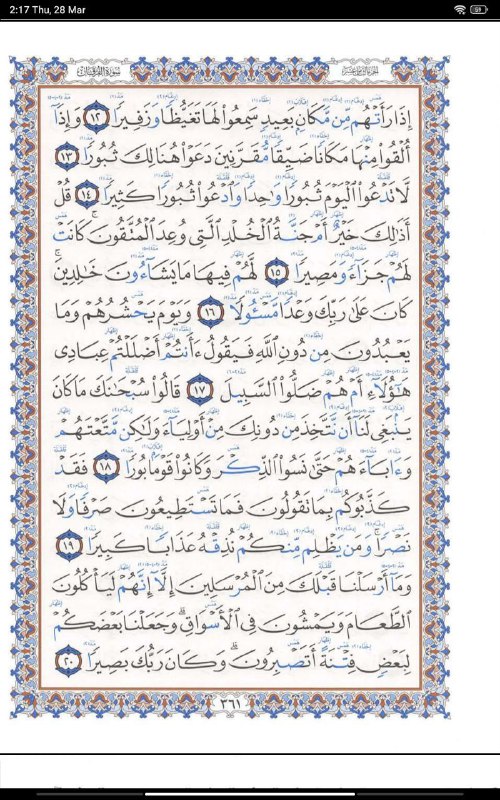 2:17 Thu, 28 Mar
سورة الفرقان
الجزء الثامن عشر
إِذَا رَأَتْهُم مِّن مَّكَانٍ بَعِيدٍ سَمِعُوا۟ لَهَا تَغَيُّظًا وَزَفِيرًا ١٢ وَإِذَآ
أُلْقُوا۟ مِنْهَا مَكَانًا ضَيِّقًا مُّقَرَّنِينَ دَعَوْا۟ هُنَالِكَ ثُبُورًا ١٣
لَّا تَدْعُوا۟ ٱلْيَوْمَ ثُبُورًا وَٰحِدًا وَٱدْعُوا۟ ثُبُورًا كَثِيرًا ١٤ قُلْ
أَذَٰلِكَ خَيْرٌ أَمْ جَنَّةُ ٱلْخُلْدِ ٱلَّتِى وُعِدَ ٱلْمُتَّقُونَ ۚ كَانَتْ
لَهُمْ جَزَآءً وَمَصِيرًا ١٥ لَّهُمْ فِيهَا مَا يَشَآءُونَ خَٰلِدِينَ ۚ
كَانَ عَلَىٰ رَبِّكَ وَعْدًا مَّسْـُٔولًا ١٦ وَيَوْمَ يَحْشُرُهُمْ وَمَا
يَعْبُدُونَ مِن دُونِ ٱللَّهِ فَيَقُولُ ءَأَنتُمْ أَضْلَلْتُمْ عِبَادِى
هَٰٓؤُلَآءِ أَمْ هُمْ ضَلُّوا۟ ٱلسَّبِيلَ ١٧ قَالُوا۟ سُبْحَٰنَكَ مَا كَانَ
يَنۢبَغِى لَنَآ أَن نَّتَّخِذَ مِن دُونِكَ مِنْ أَوْلِيَآءَ وَلَٰكِن مَّتَّعْتَهُمْ
وَءَابَآءَهُمْ حَتَّىٰ نَسُوا۟ ٱلذِّكْرَ وَكَانُوا۟ قَوْمًۢا بُورًا ١٨ فَقَدْ
كَذَّبُوكُم بِمَا تَقُولُونَ فَمَا تَسْتَطِيعُونَ صَرْفًا وَلَا
نَصْرًا ۚ وَمَن يَظْلِم مِّنكُمْ نُذِقْهُ عَذَابًا كَبِيرًا ١٩
وَمَآ أَرْسَلْنَا قَبْلَكَ مِنَ ٱلْمُرْسَلِينَ إِلَّآ إِنَّهُمْ لَيَأْكُلُونَ
ٱلطَّعَامَ وَيَمْشُونَ فِى ٱلْأَسْوَاقِ ۗ وَجَعَلْنَا بَعْضَكُمْ
لِبَعْضٍ فِتْنَةً أَتَصْبِرُونَ ۗ وَكَانَ رَبُّكَ بَصِيرًا ٢٠
٣٦١